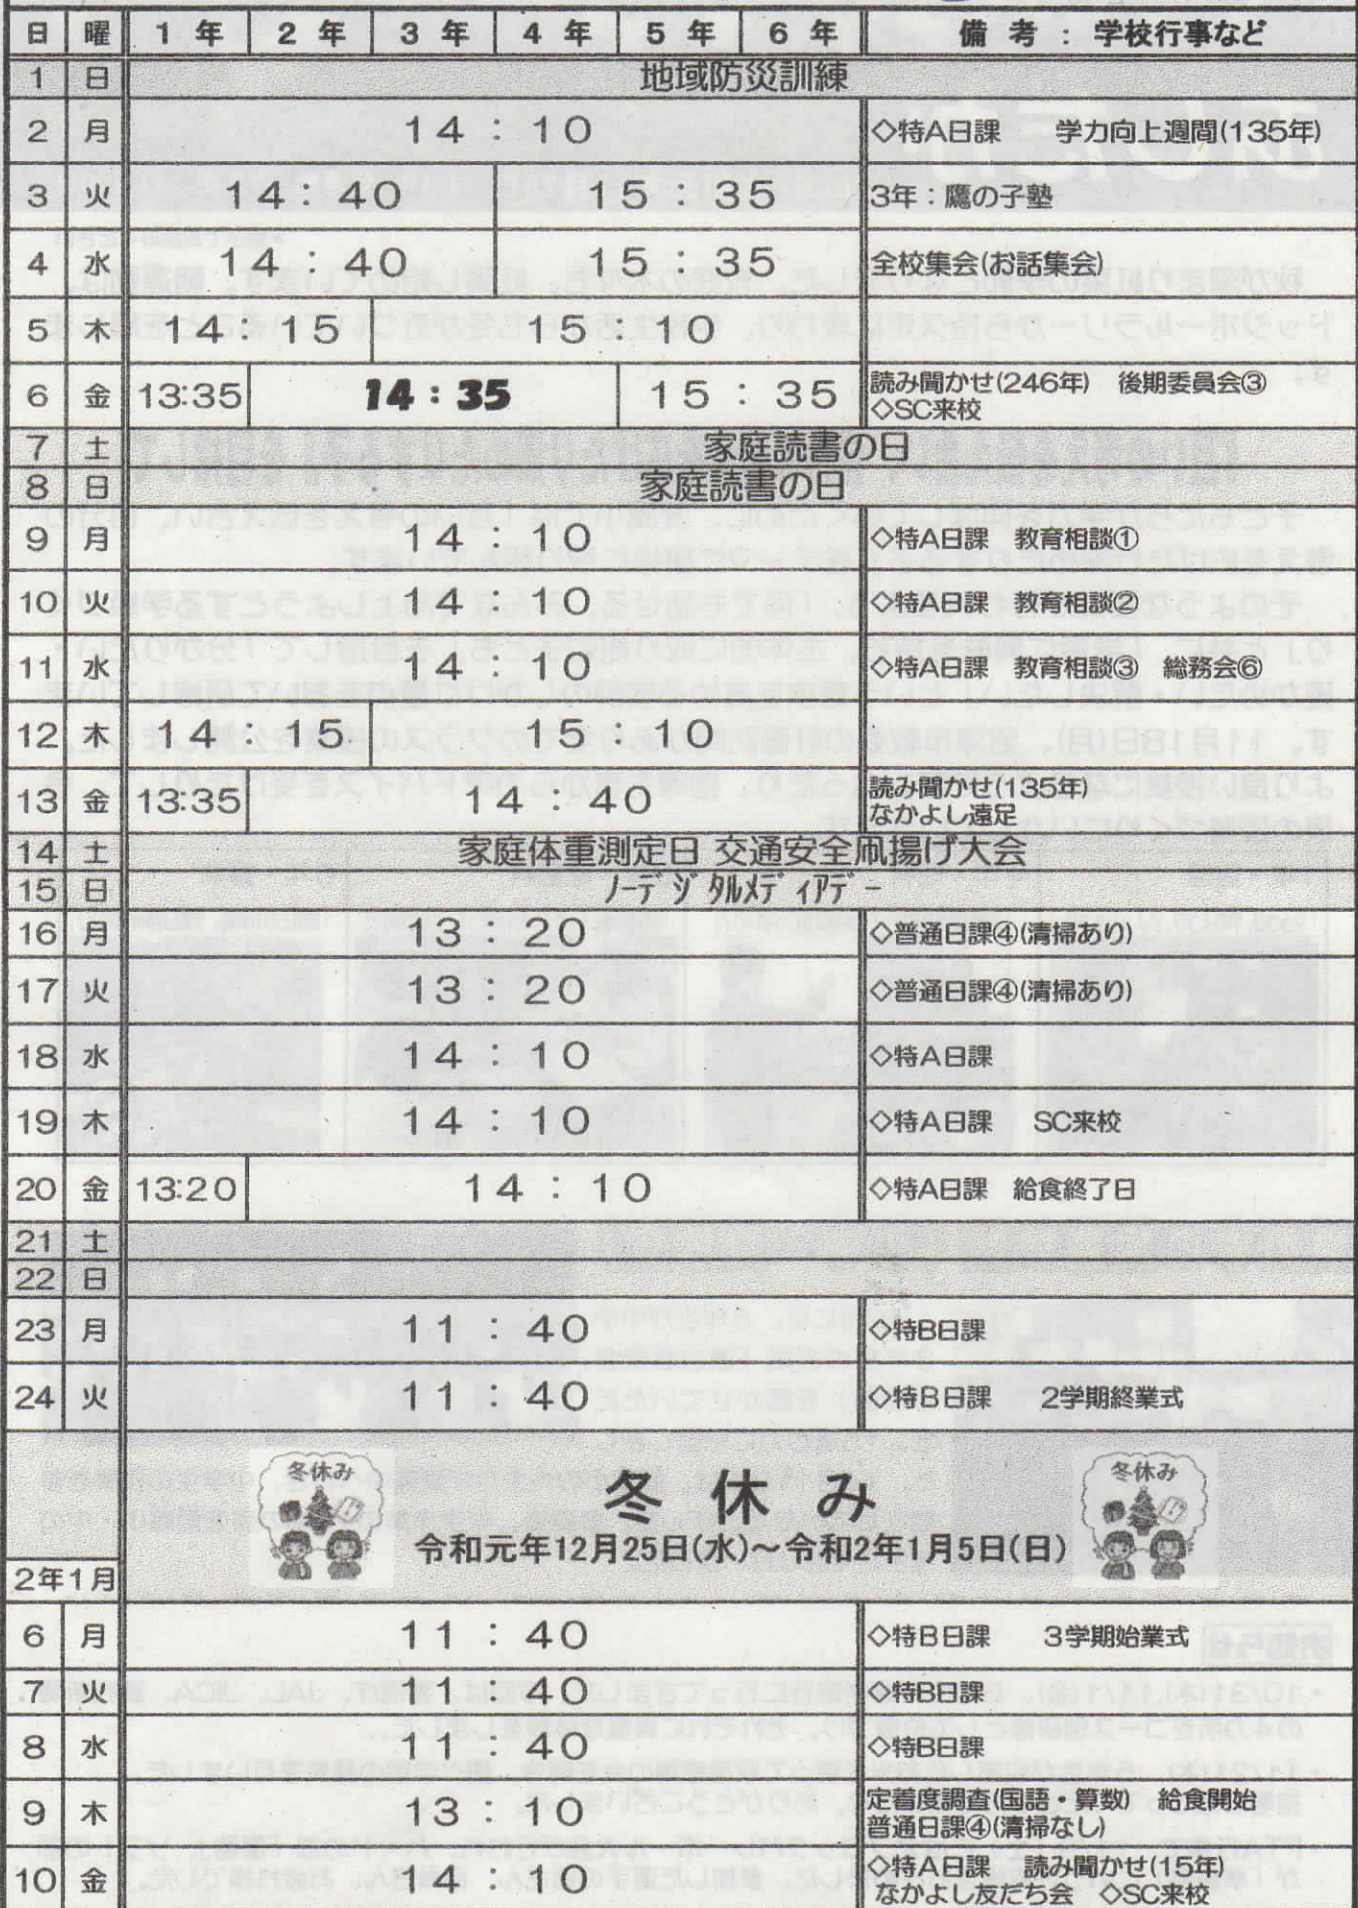 日 曜 1年 2年 3年 4年 5年 6年 備考：学校行事など
1 日 地域防災訓練
2 月 14：10 ◇特A日課 学力向上週間(135年)
3 火 14：40 15：35 3年：鷹の子塾
4 水 14：40 15：35 全校集会(お話集会)
5 木 14：15 15：10
6 金 13:35 14：35 15：35 読み聞かせ(246年) 後期委員会③
◇SC来校
7 土 家庭読書の日
8 日 家庭読書の日
9 月 14：10 ◇特A日課 教育相談①
10 火 14：10 ◇特A日課 教育相談②
11 水 14：10 ◇特A日課 教育相談③ 総務会⑥
12 木 14：15 15：10
13 金 13:35 14：40 読み聞かせ(135年)
なかよし遠足
14 土 家庭体重測定日 交通安全凧揚げ大会
15 日 ﾉｰﾃﾞｼﾞﾀﾙﾒﾃﾞｨｱﾃﾞｰ
16 月 13：20 ◇普通日課④(清掃あり)
17 火 13：20 ◇普通日課④(清掃あり)
18 水 14：10 ◇特A日課
19 木 14：10 ◇特A日課 SC来校
20 金 13:20 14：10 ◇特A日課 給食終了日
21 土
22 日
23 月 11：40 ◇特B日課
24 火 11：40 ◇特B日課 2学期終業式
冬休み 冬休み 冬休み
令和元年12月25日(水)～令和2年1月5日(日)
2年1月
6 月 11：40 ◇特B日課 3学期始業式
7 火 11：40 ◇特B日課
8 水 11：40 ◇特B日課
9 木 13：10 定着度調査(国語・算数) 給食開始
普通日課④(清掃なし)
10 金 14：10 ◇特A日課 読み聞かせ(15年)
なかよし友だち会 ◇SC来校